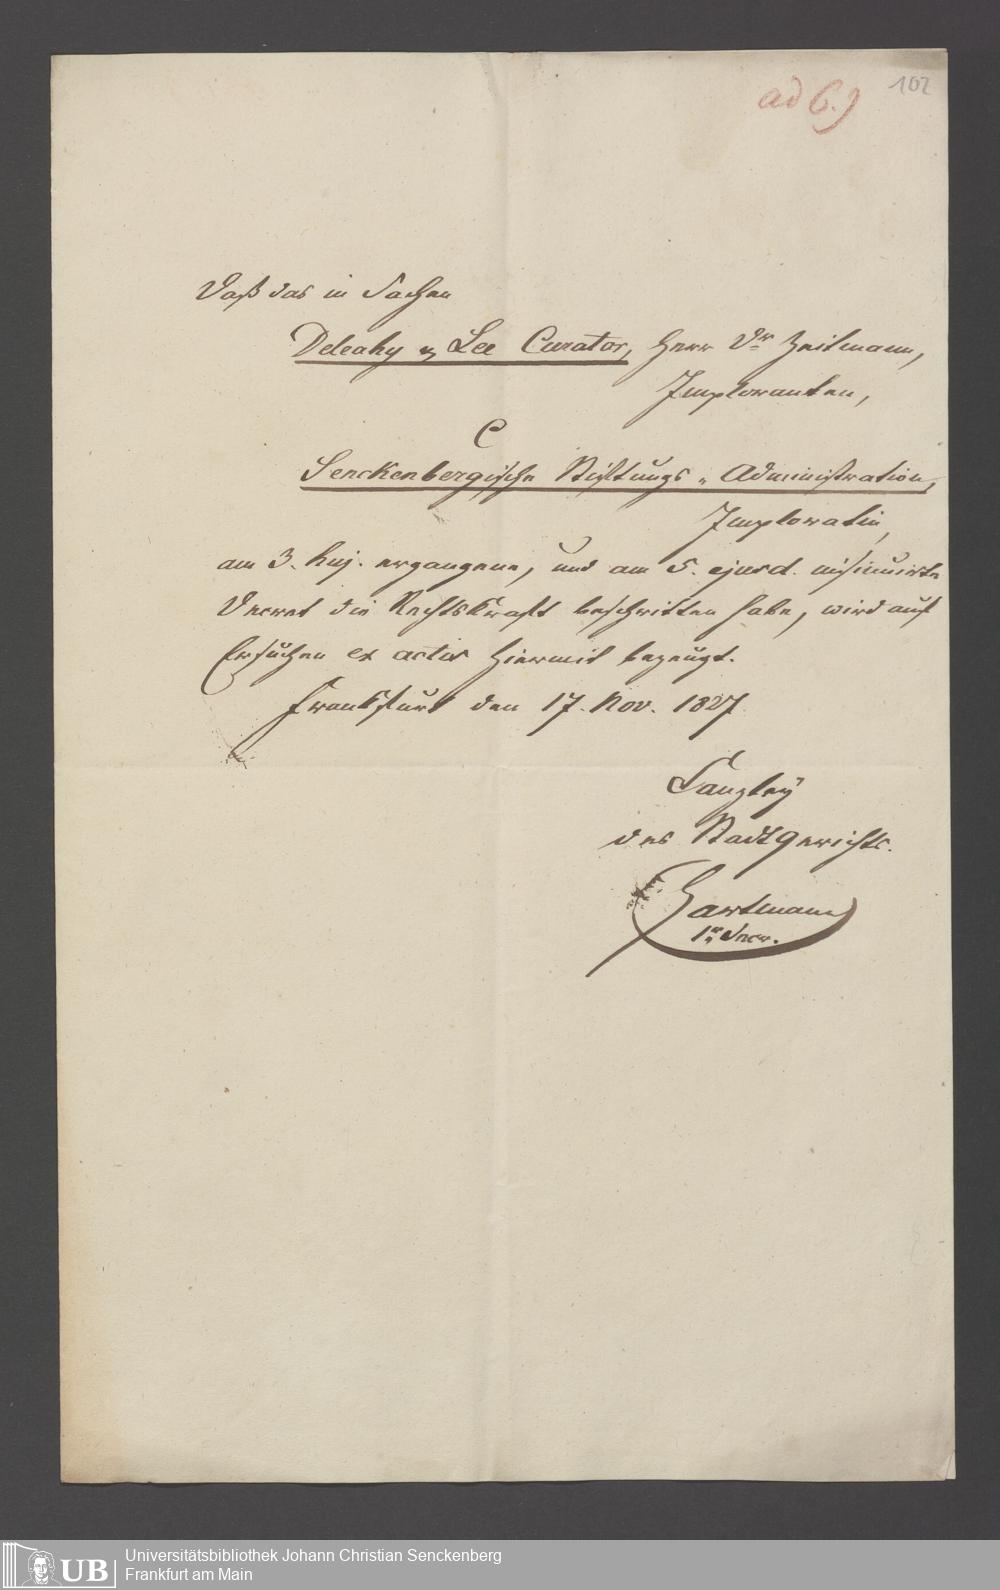 102
ad 6.)
Daß das in Sachen
Deleahy & Lee Curator, Herr Dr Zeitmann,
Imploranten,
C
Senckenbergische Stiftungs-Administration,
Imploratin,
am 3. huj. ergangene, und am 5. ejusd. insinuirte
Decret die Rechtskraft beschritten habe, wird auf
Ersuchen ex actis hiermit bezeugt.
Frankfurt den 17. Nov. 1827.
Canzley
des Stadtgerichts.
Hartmann
1r Secr.
UB
Universitätsbibliothek Johann Christian Senckenberg
Frankfurt am Main